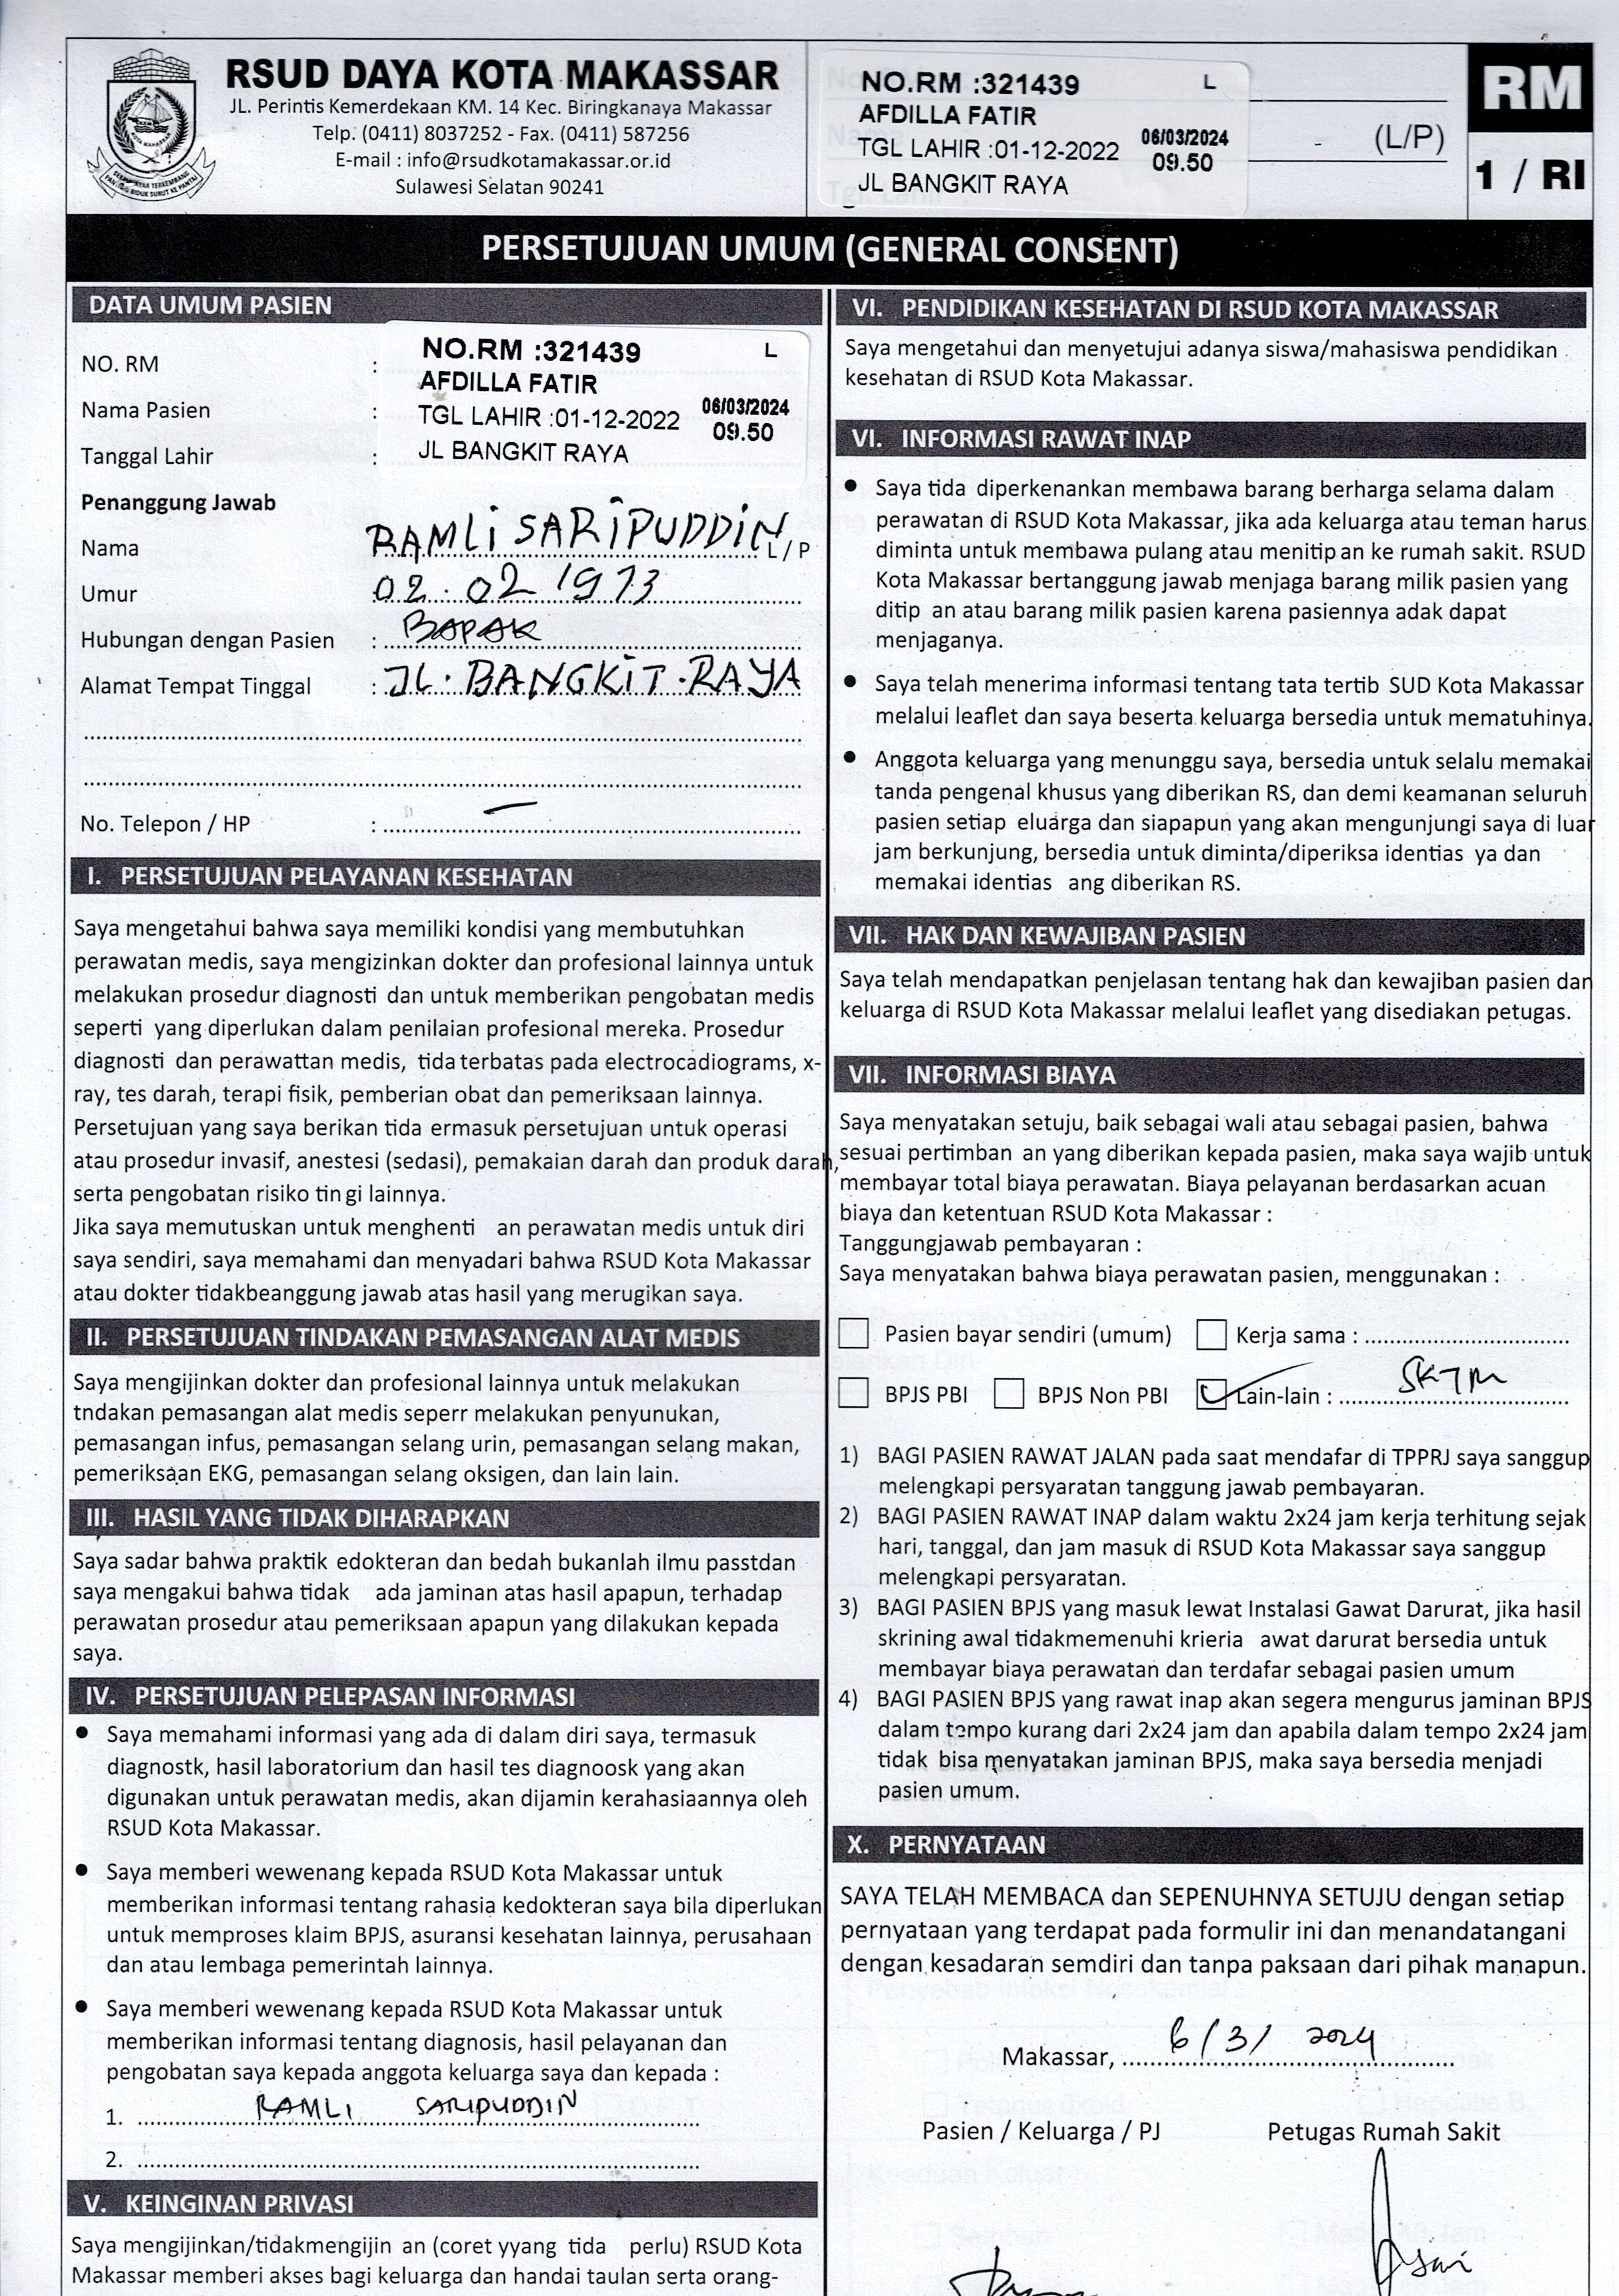 RSUD DAYA KOTA MAKASSAR
JL. Perintis Kemerdekaan KM. 14 Kec. Biringkanaya Makassar
Telp. (0411) 8037252 - Fax. (0411) 587256
E-mail : info@rsudkotamakassar.or.id
Sulawesi Selatan 90241
NO.RM :321439 L
AFDILLA FATIR
TGL LAHIR :01-12-2022 06/03/2024
09.50
JL BANGKIT RAYA
(L/P)
RM
1 / RI
PERSETUJUAN UMUM (GENERAL CONSENT)
DATA UMUM PASIEN
NO. RM :
Nama Pasien :
Tanggal Lahir :
NO.RM :321439 L
AFDILLA FATIR
TGL LAHIR :01-12-2022 06/03/2024
09.50
JL BANGKIT RAYA
Penanggung Jawab
Nama RAMLI SARIPUDDIN L / P
Umur 02. 02 1973
Hubungan dengan Pasien : BAPAK
Alamat Tempat Tinggal : JL. BANGKIT. RAYA
No. Telepon / HP : —
I. PERSETUJUAN PELAYANAN KESEHATAN
Saya mengetahui bahwa saya memiliki kondisi yang membutuhkan
perawatan medis, saya mengizinkan dokter dan profesional lainnya untuk
melakukan prosedur diagnosti dan untuk memberikan pengobatan medis
seperti yang diperlukan dalam penilaian profesional mereka. Prosedur
diagnosti dan perawattan medis, tida terbatas pada electrocadiograms, x-
ray, tes darah, terapi fisik, pemberian obat dan pemeriksaan lainnya.
Persetujuan yang saya berikan tida ermasuk persetujuan untuk operasi
atau prosedur invasif, anestesi (sedasi), pemakaian darah dan produk darah,
serta pengobatan risiko tin gi lainnya.
Jika saya memutuskan untuk menghenti an perawatan medis untuk diri
saya sendiri, saya memahami dan menyadari bahwa RSUD Kota Makassar
atau dokter tidakbeanggung jawab atas hasil yang merugikan saya.
II. PERSETUJUAN TINDAKAN PEMASANGAN ALAT MEDIS
Saya mengijinkan dokter dan profesional lainnya untuk melakukan
tndakan pemasangan alat medis seperr melakukan penyunukan,
pemasangan infus, pemasangan selang urin, pemasangan selang makan,
pemeriksaan EKG, pemasangan selang oksigen, dan lain lain.
III. HASIL YANG TIDAK DIHARAPKAN
Saya sadar bahwa praktik edokteran dan bedah bukanlah ilmu passtdan
saya mengakui bahwa tidak ada jaminan atas hasil apapun, terhadap
perawatan prosedur atau pemeriksaan apapun yang dilakukan kepada
saya.
IV. PERSETUJUAN PELEPASAN INFORMASI
● Saya memahami informasi yang ada di dalam diri saya, termasuk
diagnostk, hasil laboratorium dan hasil tes diagnoosk yang akan
digunakan untuk perawatan medis, akan dijamin kerahasiaannya oleh
RSUD Kota Makassar.
● Saya memberi wewenang kepada RSUD Kota Makassar untuk
memberikan informasi tentang rahasia kedokteran saya bila diperlukan
untuk memproses klaim BPJS, asuransi kesehatan lainnya, perusahaan
dan atau lembaga pemerintah lainnya.
● Saya memberi wewenang kepada RSUD Kota Makassar untuk
memberikan informasi tentang diagnosis, hasil pelayanan dan
pengobatan saya kepada anggota keluarga saya dan kepada :
1. RAMLI SARIPUDDIN
2.
V. KEINGINAN PRIVASI
Saya mengijinkan/tidakmengijin an (coret yyang tida perlu) RSUD Kota
Makassar memberi akses bagi keluarga dan handai taulan serta orang-
VI. PENDIDIKAN KESEHATAN DI RSUD KOTA MAKASSAR
Saya mengetahui dan menyetujui adanya siswa/mahasiswa pendidikan
kesehatan di RSUD Kota Makassar.
VI. INFORMASI RAWAT INAP
● Saya tida diperkenankan membawa barang berharga selama dalam
perawatan di RSUD Kota Makassar, jika ada keluarga atau teman harus
diminta untuk membawa pulang atau menitip an ke rumah sakit. RSUD
Kota Makassar bertanggung jawab menjaga barang milik pasien yang
ditip an atau barang milik pasien karena pasiennya adak dapat
menjaganya.
● Saya telah menerima informasi tentang tata tertib SUD Kota Makassar
melalui leaflet dan saya beserta keluarga bersedia untuk mematuhinya.
● Anggota keluarga yang menunggu saya, bersedia untuk selalu memakai
tanda pengenal khusus yang diberikan RS, dan demi keamanan seluruh
pasien setiap eluarga dan siapapun yang akan mengunjungi saya di luar
jam berkunjung, bersedia untuk diminta/diperiksa identias ya dan
memakai identias ang diberikan RS.
VII. HAK DAN KEWAJIBAN PASIEN
Saya telah mendapatkan penjelasan tentang hak dan kewajiban pasien dan
keluarga di RSUD Kota Makassar melalui leaflet yang disediakan petugas.
VII. INFORMASI BIAYA
Saya menyatakan setuju, baik sebagai wali atau sebagai pasien, bahwa
sesuai pertimban an yang diberikan kepada pasien, maka saya wajib untuk
membayar total biaya perawatan. Biaya pelayanan berdasarkan acuan
biaya dan ketentuan RSUD Kota Makassar :
Tanggungjawab pembayaran :
Saya menyatakan bahwa biaya perawatan pasien, menggunakan :
Pasien bayar sendiri (umum) Kerja sama :
BPJS PBI BPJS Non PBI Lain-lain : SKTM
1) BAGI PASIEN RAWAT JALAN pada saat mendafar di TPPRJ saya sanggup
melengkapi persyaratan tanggung jawab pembayaran.
2) BAGI PASIEN RAWAT INAP dalam waktu 2x24 jam kerja terhitung sejak
hari, tanggal, dan jam masuk di RSUD Kota Makassar saya sanggup
melengkapi persyaratan.
3) BAGI PASIEN BPJS yang masuk lewat Instalasi Gawat Darurat, jika hasil
skrining awal tidakmemenuhi krieria awat darurat bersedia untuk
membayar biaya perawatan dan terdafar sebagai pasien umum
4) BAGI PASIEN BPJS yang rawat inap akan segera mengurus jaminan BPJS
dalam tempo kurang dari 2x24 jam dan apabila dalam tempo 2x24 jam
tidak bisa menyatakan jaminan BPJS, maka saya bersedia menjadi
pasien umum.
X. PERNYATAAN
SAYA TELAH MEMBACA dan SEPENUHNYA SETUJU dengan setiap
pernyataan yang terdapat pada formulir ini dan menandatangani
dengan kesadaran semdiri dan tanpa paksaan dari pihak manapun.
Makassar, 6/3/ 2024
Pasien / Keluarga / PJ Petugas Rumah Sakit